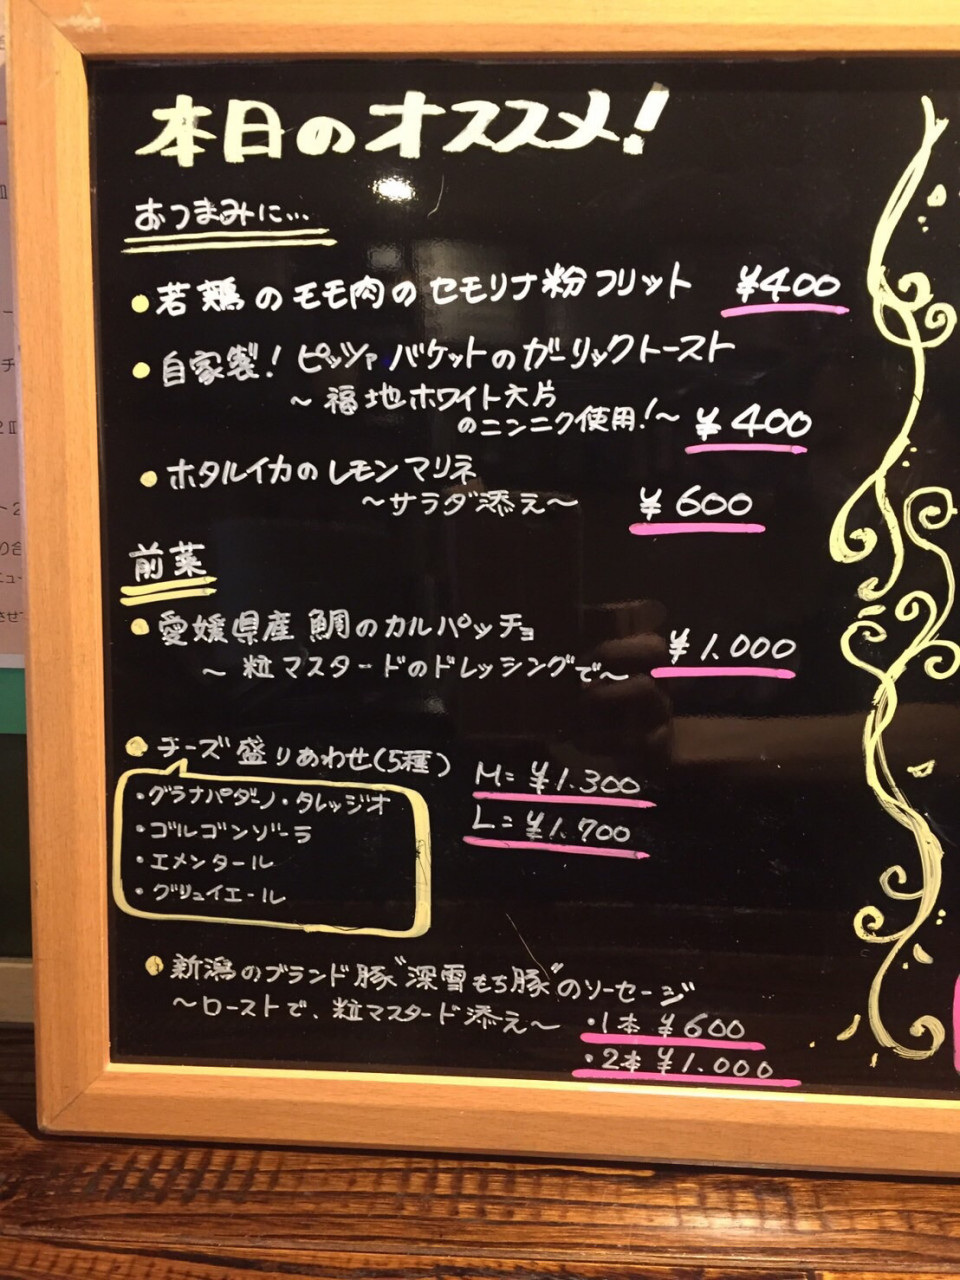 本日のオススメ!
おつまみに…
若鶏のモモ肉のセモリナ粉フリット ¥400
自家製!ピッツァバケットのガーリックトースト
~福地ホワイト六片
のニンニク使用!~ ¥400
ホタルイカのレモンマリネ
~サラダ添え~ ¥600
前菜
愛媛県産鯛のカルパッチョ
~粒マスタードのドレッシングで~ ¥1.000
チーズ盛りあわせ(5種) M=¥1.300
・グラナパダーノ・タレッジオ
・ゴルゴンゾーラ L=¥1.700
・エメンタール
・グリュイエール
新潟のブランド豚"深雪もち豚"のソーセージ
~ローストで、粒マスタード添え~ ・1本 ¥600
・2本 ¥1.000